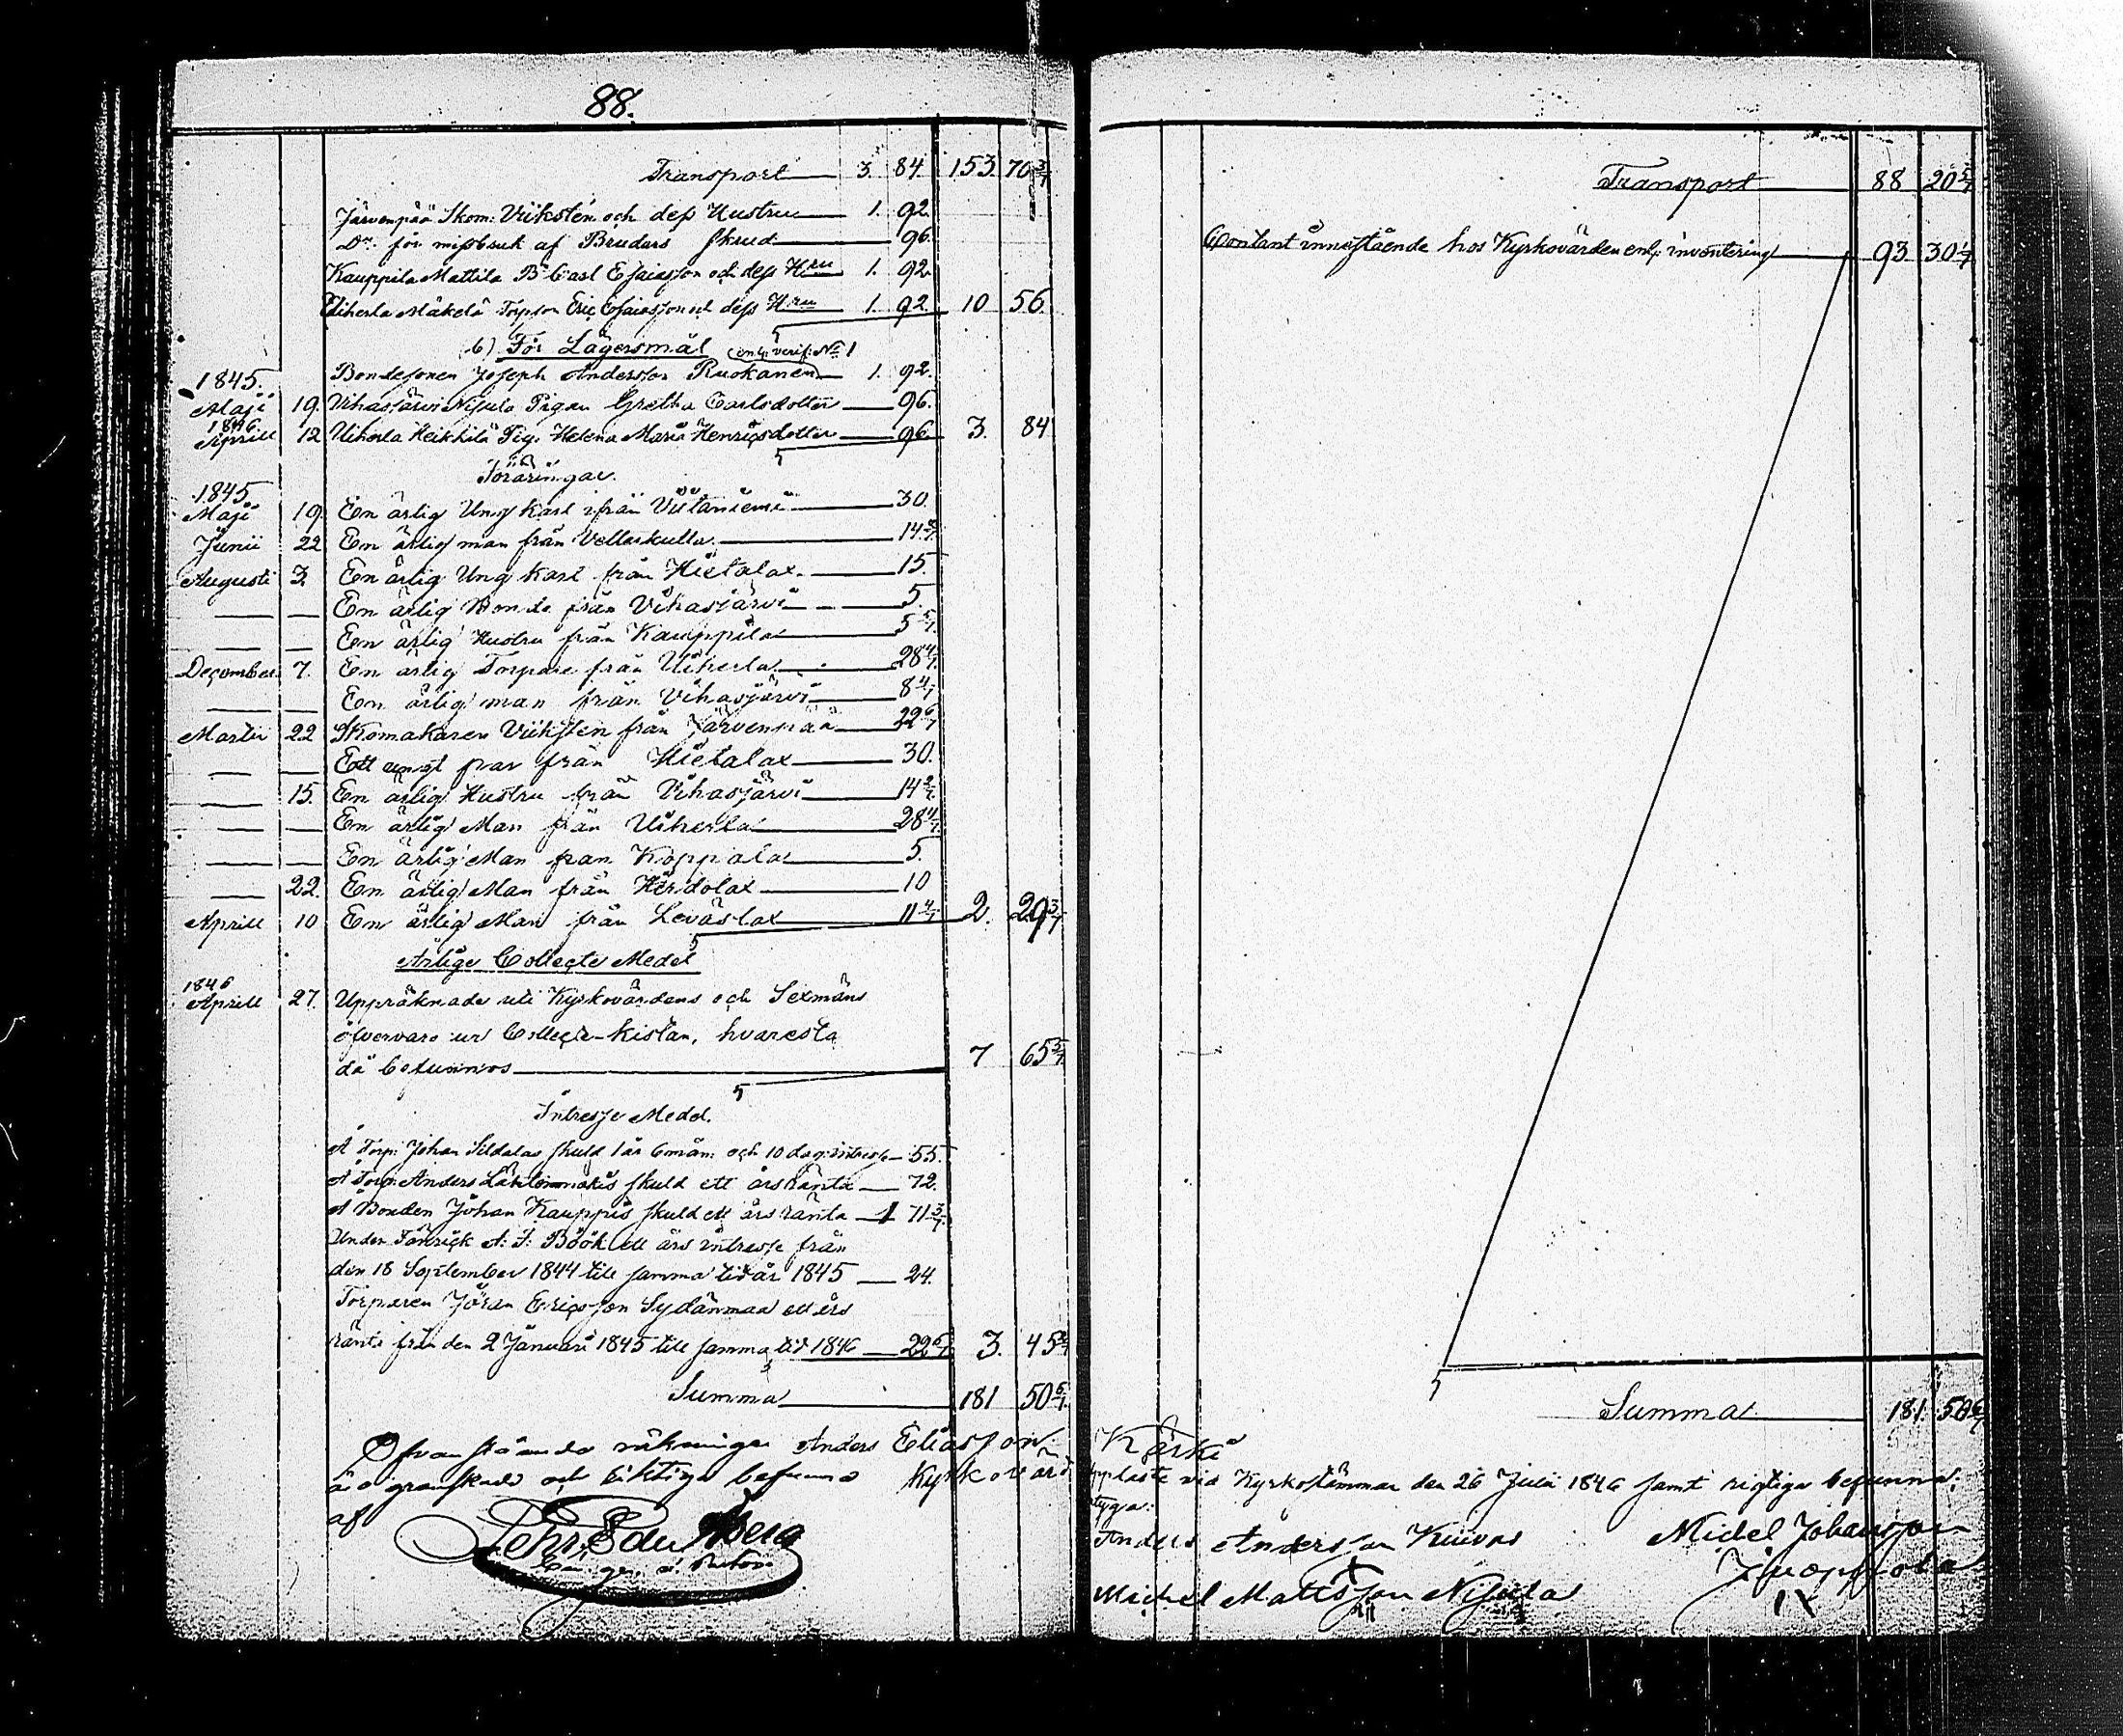 88.
Transport 3. 84. 153. 70 3/7
Järvenpää Skom: Viikstén och dess Hustru 1. 92.
Do för missbruk af Brudars skrud 96.
Kauppila Mattila B. Carl Esaiasson och dess Hru 1. 92.
Uiherla Mäkelä Torpson Eric Esaiasson och dess Hru 1. 92. 10 56.
b) För Lägersmål enl: verif: No 1
1845. Bondesonen Joseph Andersson Ruokanen 1. 92.
Maji 19. Vihasjärvi Nisula Pigan Gretha Carlsdotter 96.
1846
Aprill 12 Uiherla Heikkilä Pig. Helena Maria Henricsdotter 96. 3. 84
Föräringar.
1845
Maji 19. En ärlig Ung karl ifrån Viitaniemi 30.
Junii 22 En ärlig man från Vellaskulla 14 2/7.
Augusti 3. En ärlig Ung karl från Hietalax. 15.
En ärlig Bonde från Vihasjärvi 5.
En ärlig Hustru från Kauppila 5 5/7.
December 7. En ärlig Torpare från Uiherla 28 4/7.
En ärlig man från Vihasjärvi 8 4/7
Martii 22 Skomakaren Viikstén från Järvenpää 22 6/7
Ett ungt par från Hietalax 30.
15. En ärlig Hustru från Vihasjärvi 14 2/7.
En ärlig Man från Uiherla 28 4/7.
En ärlig Man från Koppala 5.
22. En ärlig Man från Heidolax 10
Aprill 10 En ärlig Man från Leväslax 11 4/7. 2. 29 3/7
Årlige Collecte Medel
1846
Aprill 27. Uppräknades uti Kyrkovärdens och Sexmäns
öfvervaro ur Collecte-kistan, hvaresta
då befunnos 7 65 5/7.
Intresse Medel.
Å Torp: Johan Sildalas skuld 1 år 6 mån: och 10 dag: intresse 55.
Å Torp: Anders skuld ett års ränta 72.
Å Bonden Johan Kauppis skuld ett års ränta 1 71 3/7.
Under Fänrick A: J: Böök ett års intresse från
den 18 September 1844 till samma tid år 1845 24.
Torparen Jöran Ericsson Sydänmaa ett års
ränta från den 2 Januari 1845 till samma tid 1846 22 6/7 3. 45 2/7
Summa 181 50 6/7.
Ofvanstående räkningar Anders Eliasson
äro granskade och riktiga befunna Kyrkovärd
af
Transport 88 20 5/7
Contant innestående hos Kyrkovärden enl: inventering 93. 30 1/7
Summa 181. 50 6/7
Kärki
upplaste vid Kyrkostämman den 26 Julii 1846 samt rigtige befunna.
Anders Andersson Kuivas Michel Johansson
Michel Mattsson Nisula